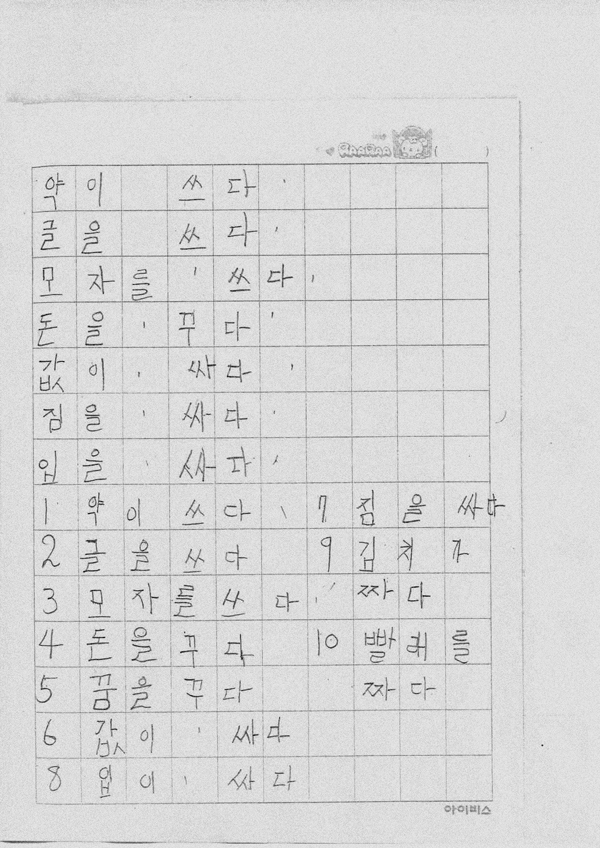 ( )
약이 쓰다
글을 쓰다
모자를 쓰다
돈을 꾸다
값이 싸다
짐을 싸다
입을 싸다
1 약이 쓰다 7 짐을 싸다
2 글을 쓰다 9 김치가
3 모자를 쓰다 짜다
4 돈을 꾸다 10 빨래를
5 꿈을 꾸다 짜다
6 값이 싸다
8 입이 싸다
아이비스